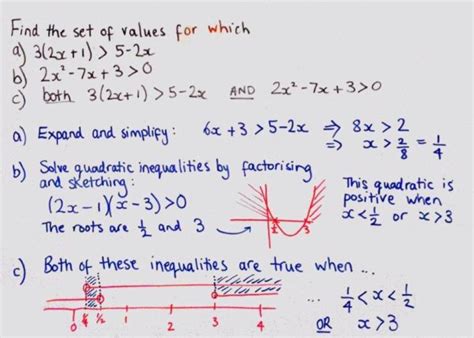 Find the set of values for which
a) 3(2x+1) > 5-2x
b) 2x²-7x+3>0
c) both 3(2x+1) > 5-2x AND 2x²-7x+3>0
a) Expand and simplify: 6x+3 > 5-2x ⇒ 8x > 2
⇒ x > 2/8 = 1/4
b) Solve quadratic inequalities by factorising
and sketching:
(2x-1)(x-3)>0
The roots are 1/2 and 3
1/2 3
This quadratic is
positive when
x<1/2 or x>3
c) Both of these inequalities are true when ...
0 1/4 1/2 1 2 3 4
... 1/4 < x < 1/2
OR x>3